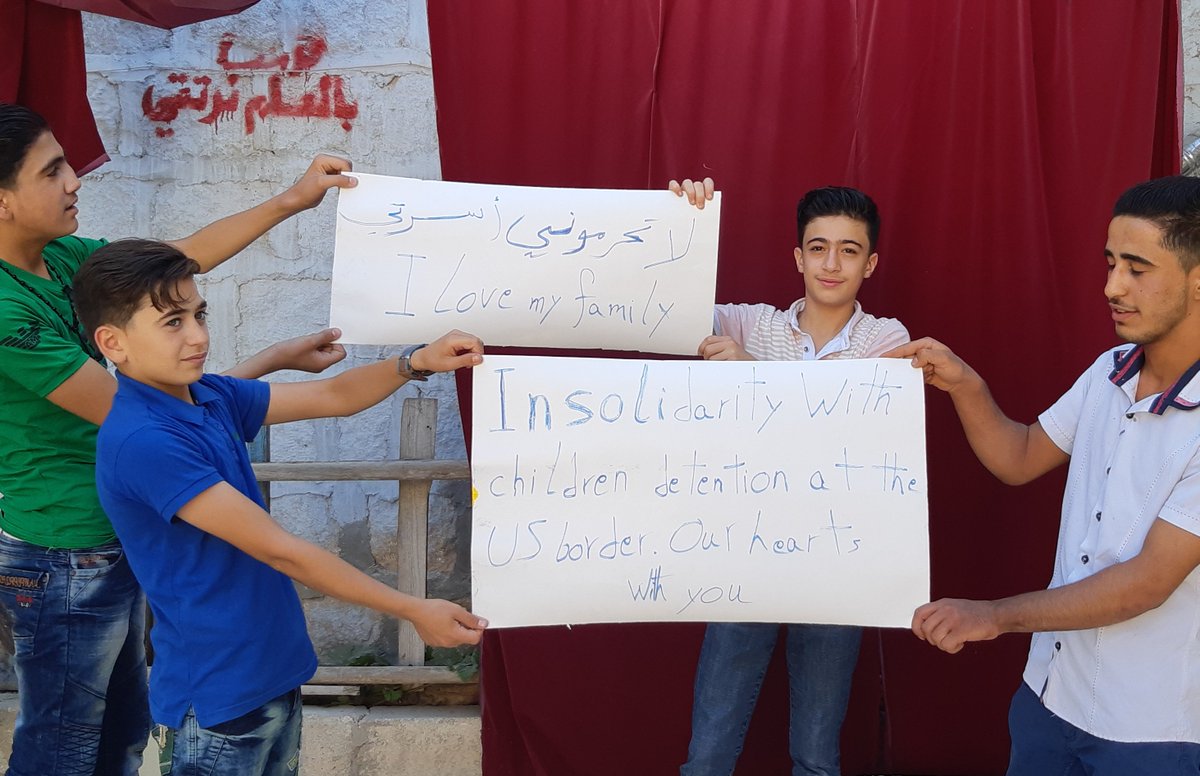 بالعلم نرتقي
لا تحرموني أسرتي
I Love my family
Insolidarity With
children detention at the
US border. Our hearts
with you